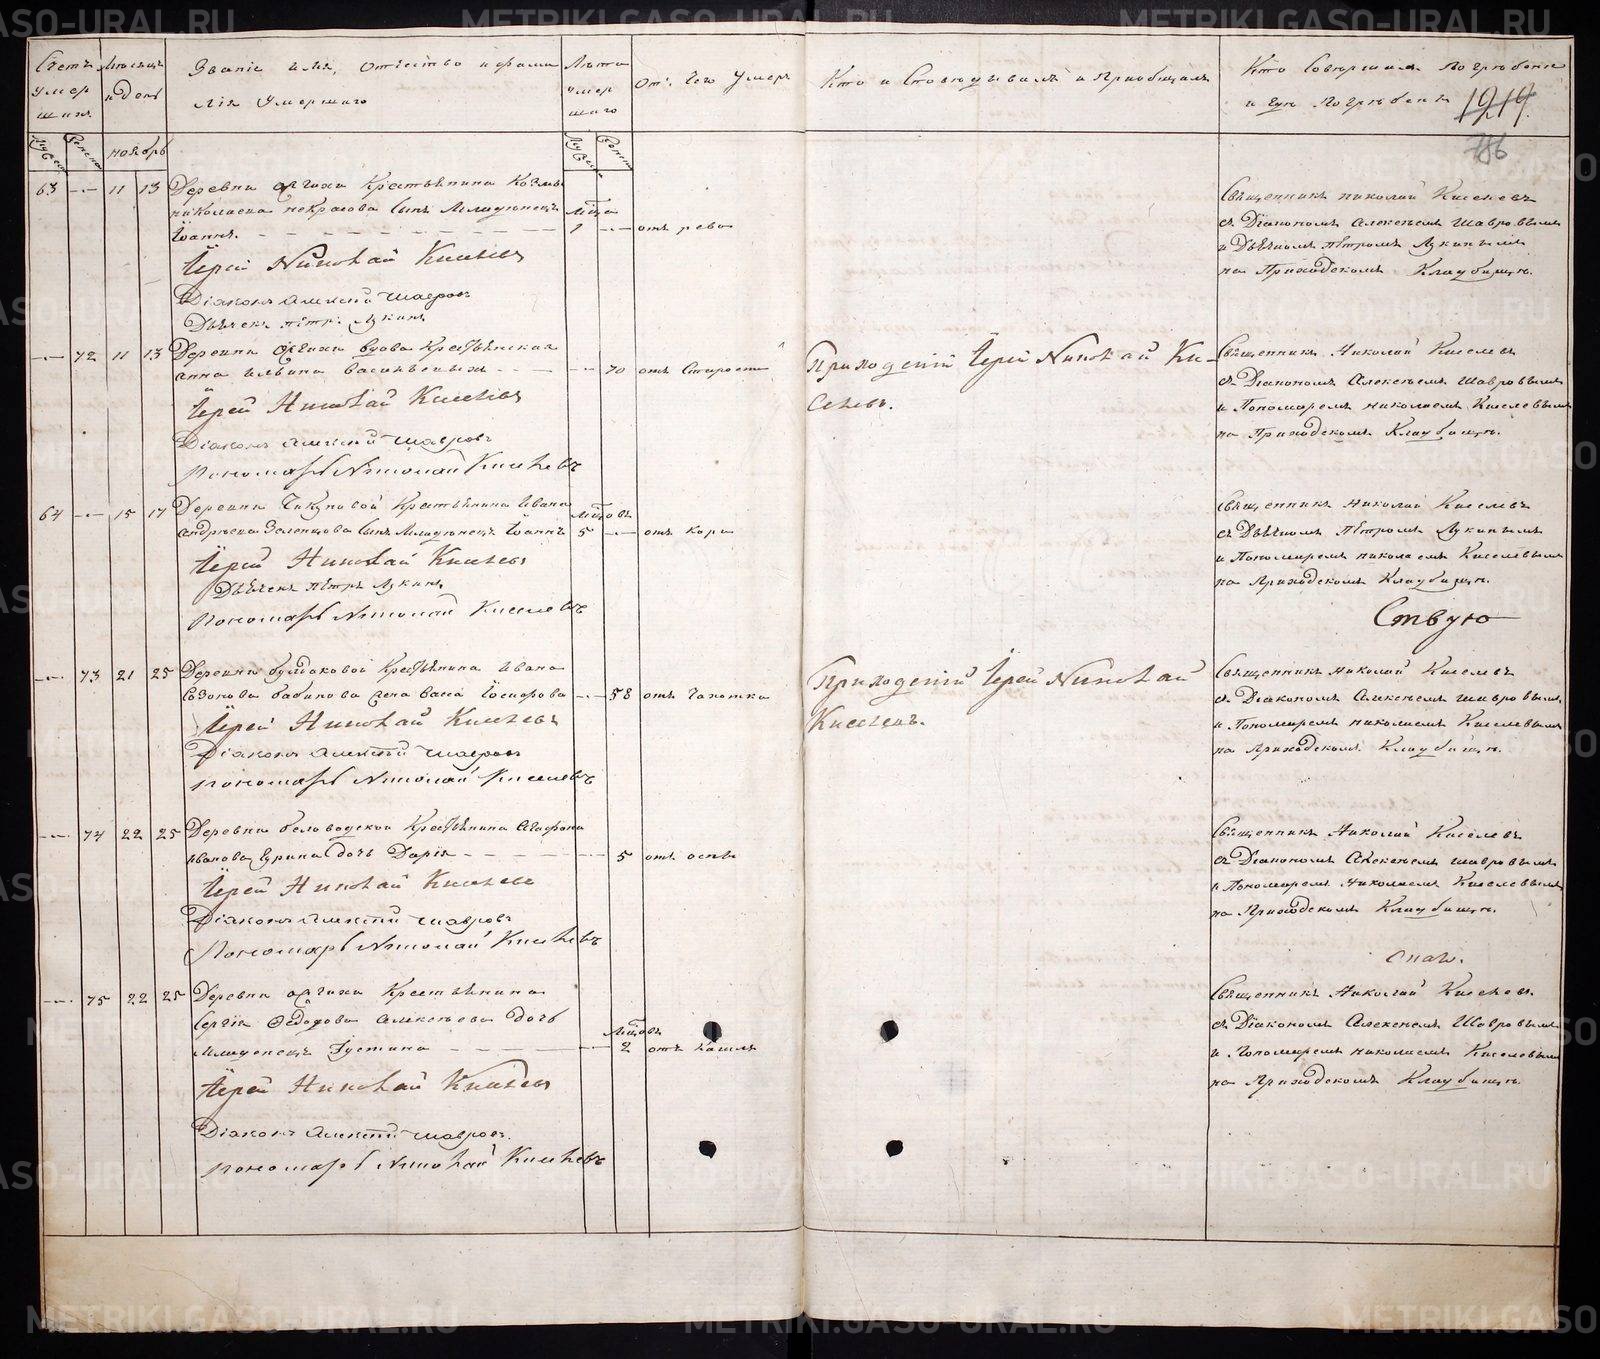 METRIKI.GASO-URAL.RU
Счетъ умершихъ
Мѣсяцъ и День
Званіе имя, отчество и фамилія умершаго
Лѣта умершаго
Отъ чего умеръ
Кто исповѣдывалъ и приобщалъ
Кто совершалъ погребеніе
и гдѣ погребены
1217
186
Ноябрь
63 11 13 Деревни крестьянина Козмы
Николаева Некрасова сынъ младенецъ
Іоаннъ. 1 отъ рева
Іерей Николай Киселевъ
Діаконъ Алексѣй Шавровъ
Дьячекъ Петръ Лукинъ
Священникъ Николай Киселевъ
съ Діакономъ Алексѣемъ Шавровымъ
и Дьячкомъ Петромъ Лукинымъ
на Приходскомъ Кладбищѣ.
72 11 13 Деревни вдова крестьянская
Анна 70 отъ старости
Іерей Николай Киселевъ
Діаконъ Алексѣй Шавровъ
Пономарь Николай Киселевъ
Приходскій Іерей Николай Киселевъ.
Священникъ Николай Киселевъ
съ Діакономъ Алексѣемъ Шавровымъ
и Пономаремъ Николаемъ Киселевымъ
на Приходскомъ Кладбищѣ.
64 15 17 Деревни крестьянина Ивана
Андреева сынъ младенецъ Іоаннъ 5 отъ кори
Іерей Николай Киселевъ
Дьячекъ Петръ Лукинъ
Пономарь Николай Киселевъ
Священникъ Николай Киселевъ
съ Дьячкомъ Петромъ Лукинымъ
и Пономаремъ Николаемъ Киселевымъ
на Приходскомъ Кладбищѣ.
73 21 25 Деревни крестьянина Ивана
Бабинова жена 58 отъ чахотки
Іерей Николай Киселевъ
Діаконъ Алексѣй Шавровъ
Пономарь Николай Киселевъ
Приходскій Іерей Николай
Киселевъ.
Священникъ Николай Киселевъ
съ Діакономъ Алексѣемъ Шавровымъ
и Пономаремъ Николаемъ Киселевымъ
на Приходскомъ Кладбищѣ.
74 22 25 Деревни Беловодской крестьянина Агафона
Иванова дочь Дарія 5 отъ оспы
Іерей Николай Киселевъ
Діаконъ Алексѣй Шавровъ
Пономарь Николай Киселевъ
Священникъ Николай Киселевъ
съ Діакономъ Алексѣемъ Шавровымъ
и Пономаремъ Николаемъ Киселевымъ
на Приходскомъ Кладбищѣ.
75 22 25 Деревни крестьянина
Сергія Алексѣева дочь
младенецъ Іустина 2 отъ кашля
Іерей Николай Киселевъ
Діаконъ Алексѣй Шавровъ.
Пономарь Николай Киселевъ
Священникъ Николай Киселевъ
съ Діакономъ Алексѣемъ Шавровымъ
и Пономаремъ Николаемъ Киселевымъ
на Приходскомъ Кладбищѣ.